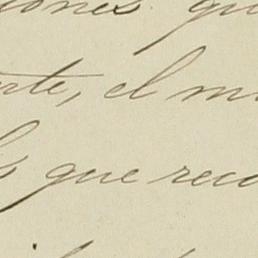 iones. qu
rte, el m
s que reco